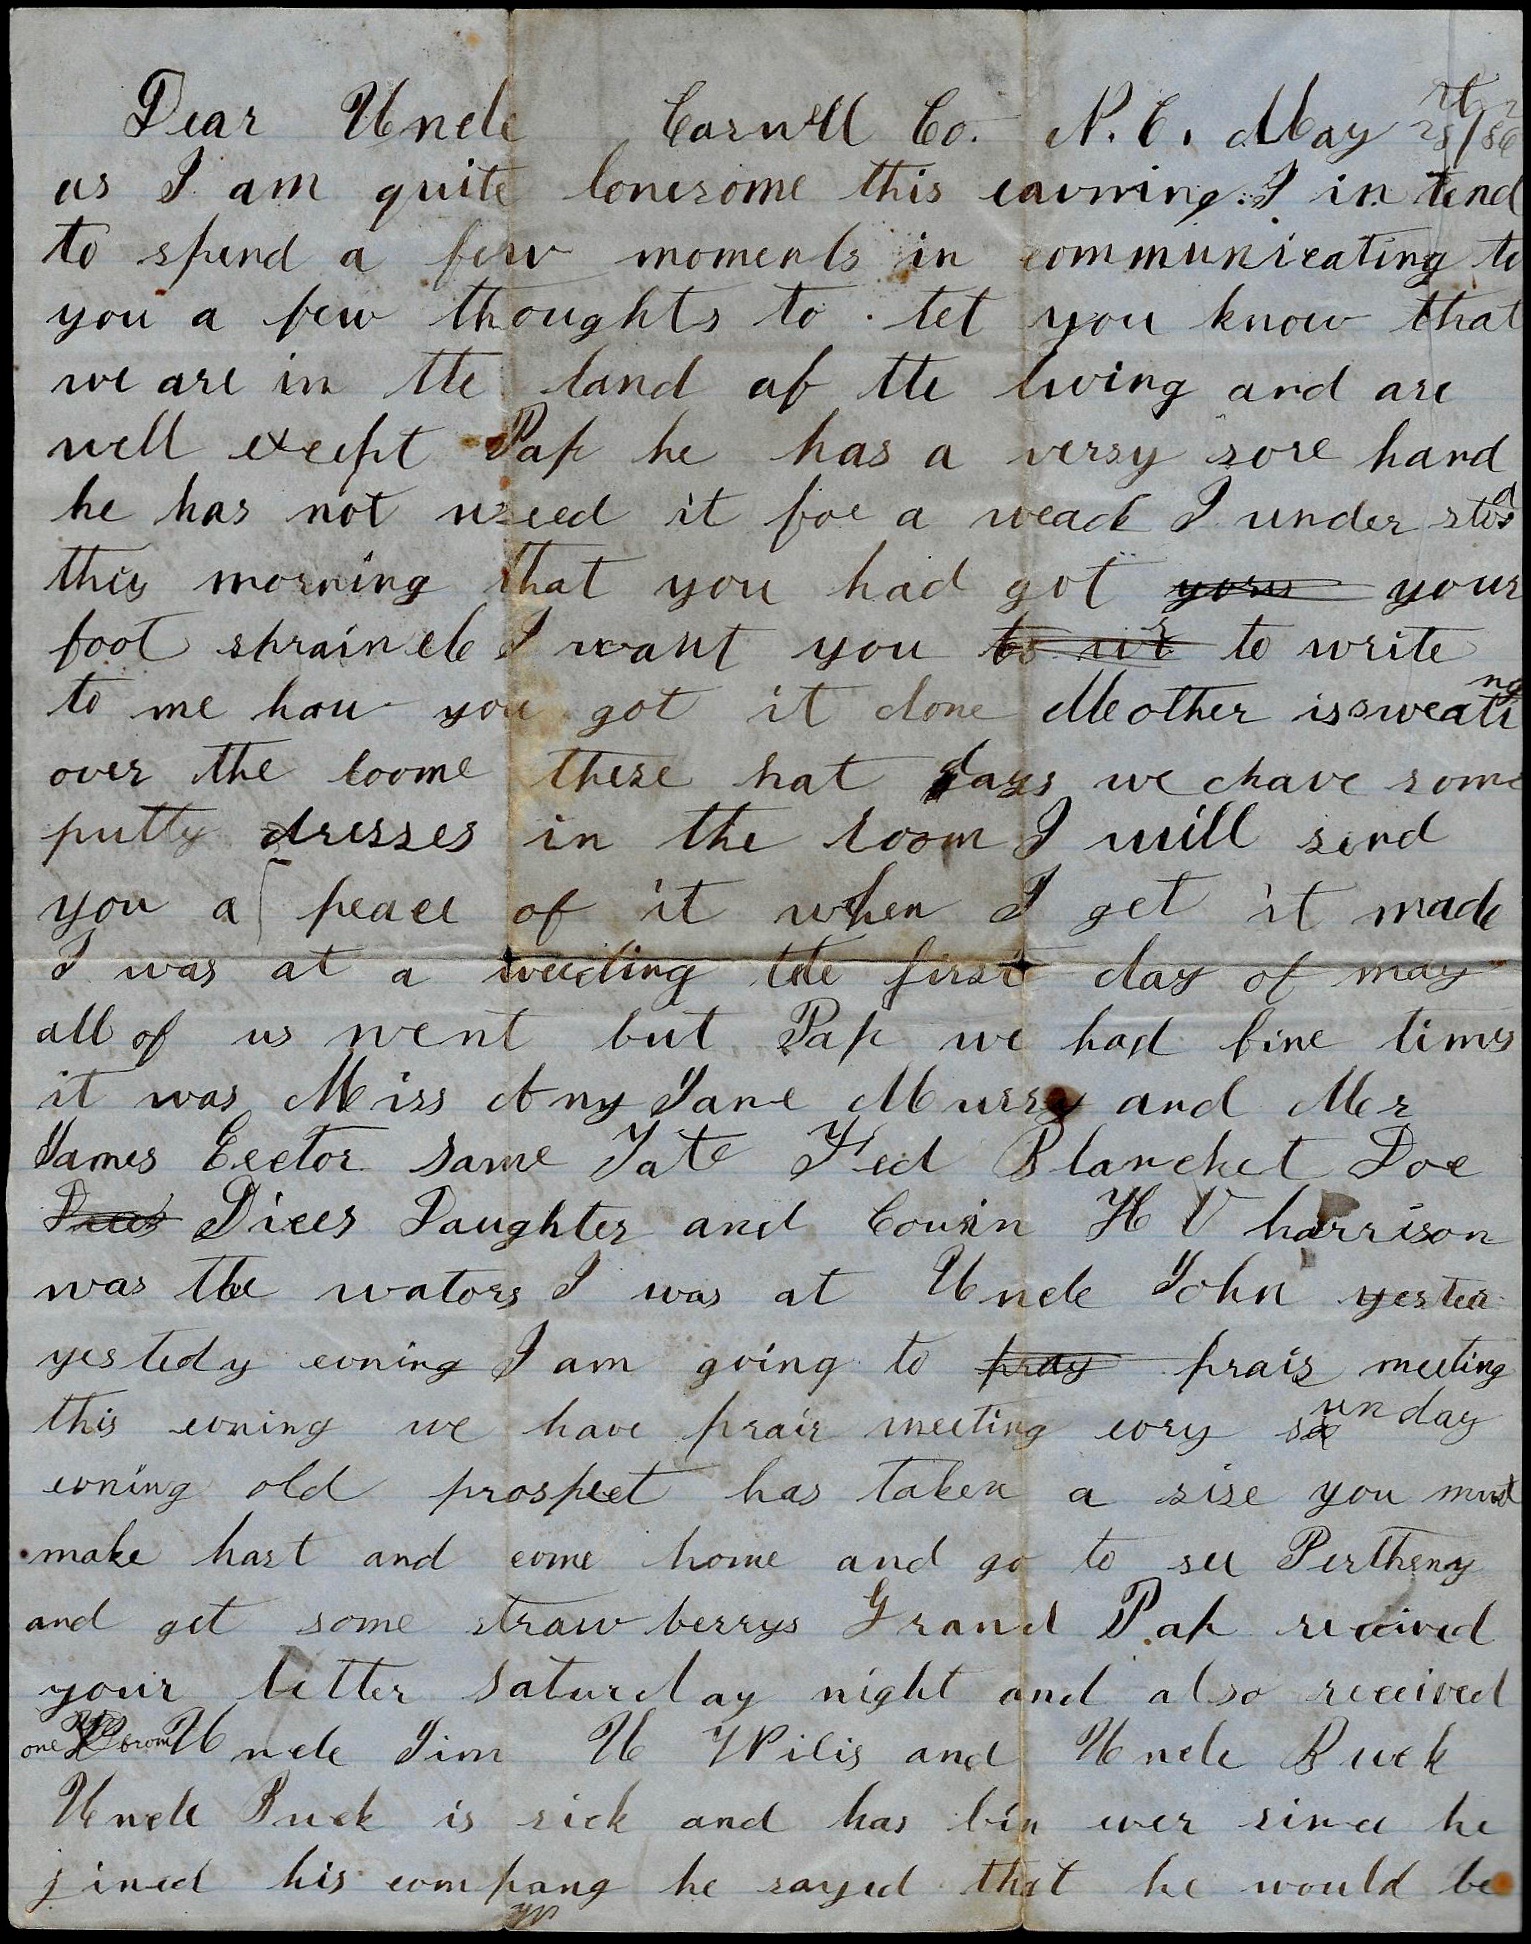 Dear Uncle Carwell Co. N. C. May 25th /862
as I am quite lonesome this eavning I in tend
to spend a few moments in communicating to
you a few thoughts to let you know that
we are in the land of the living and are
well except Pap he has a versy sore hand
he has not useed it foe a weack I under stod
this morning that you had got your your
foot strain de I want you to wr to write
to me how you got it done Meother is sweating
over the loome these hat days we chave some
putty dresses in the loom I will send
you a peace of it when I get it made
I was at a weeding the first day of may
all of us went but Pap we had fine times
it was Miss Any Jane Mursy and Mer
James Eector Same Tate Fed Blanchet Doe
Dices Dices Daughter and Cousin H V harrison
was the wators I was at Uncle John yester
yestedy evning I am going to pray prair meeting
this evning we have prair meeting evry sunday
evning old prospect has taken a rise you must
make hast and come home and go to see Pertheny
and get some straw berrys Grand Pap received
your letter Saturday night and also received
one from Uncle Jim U Wilis and Uncle Buck
Uncle Buck is sick and has bin ever since he
jined his company he sayed that he would be